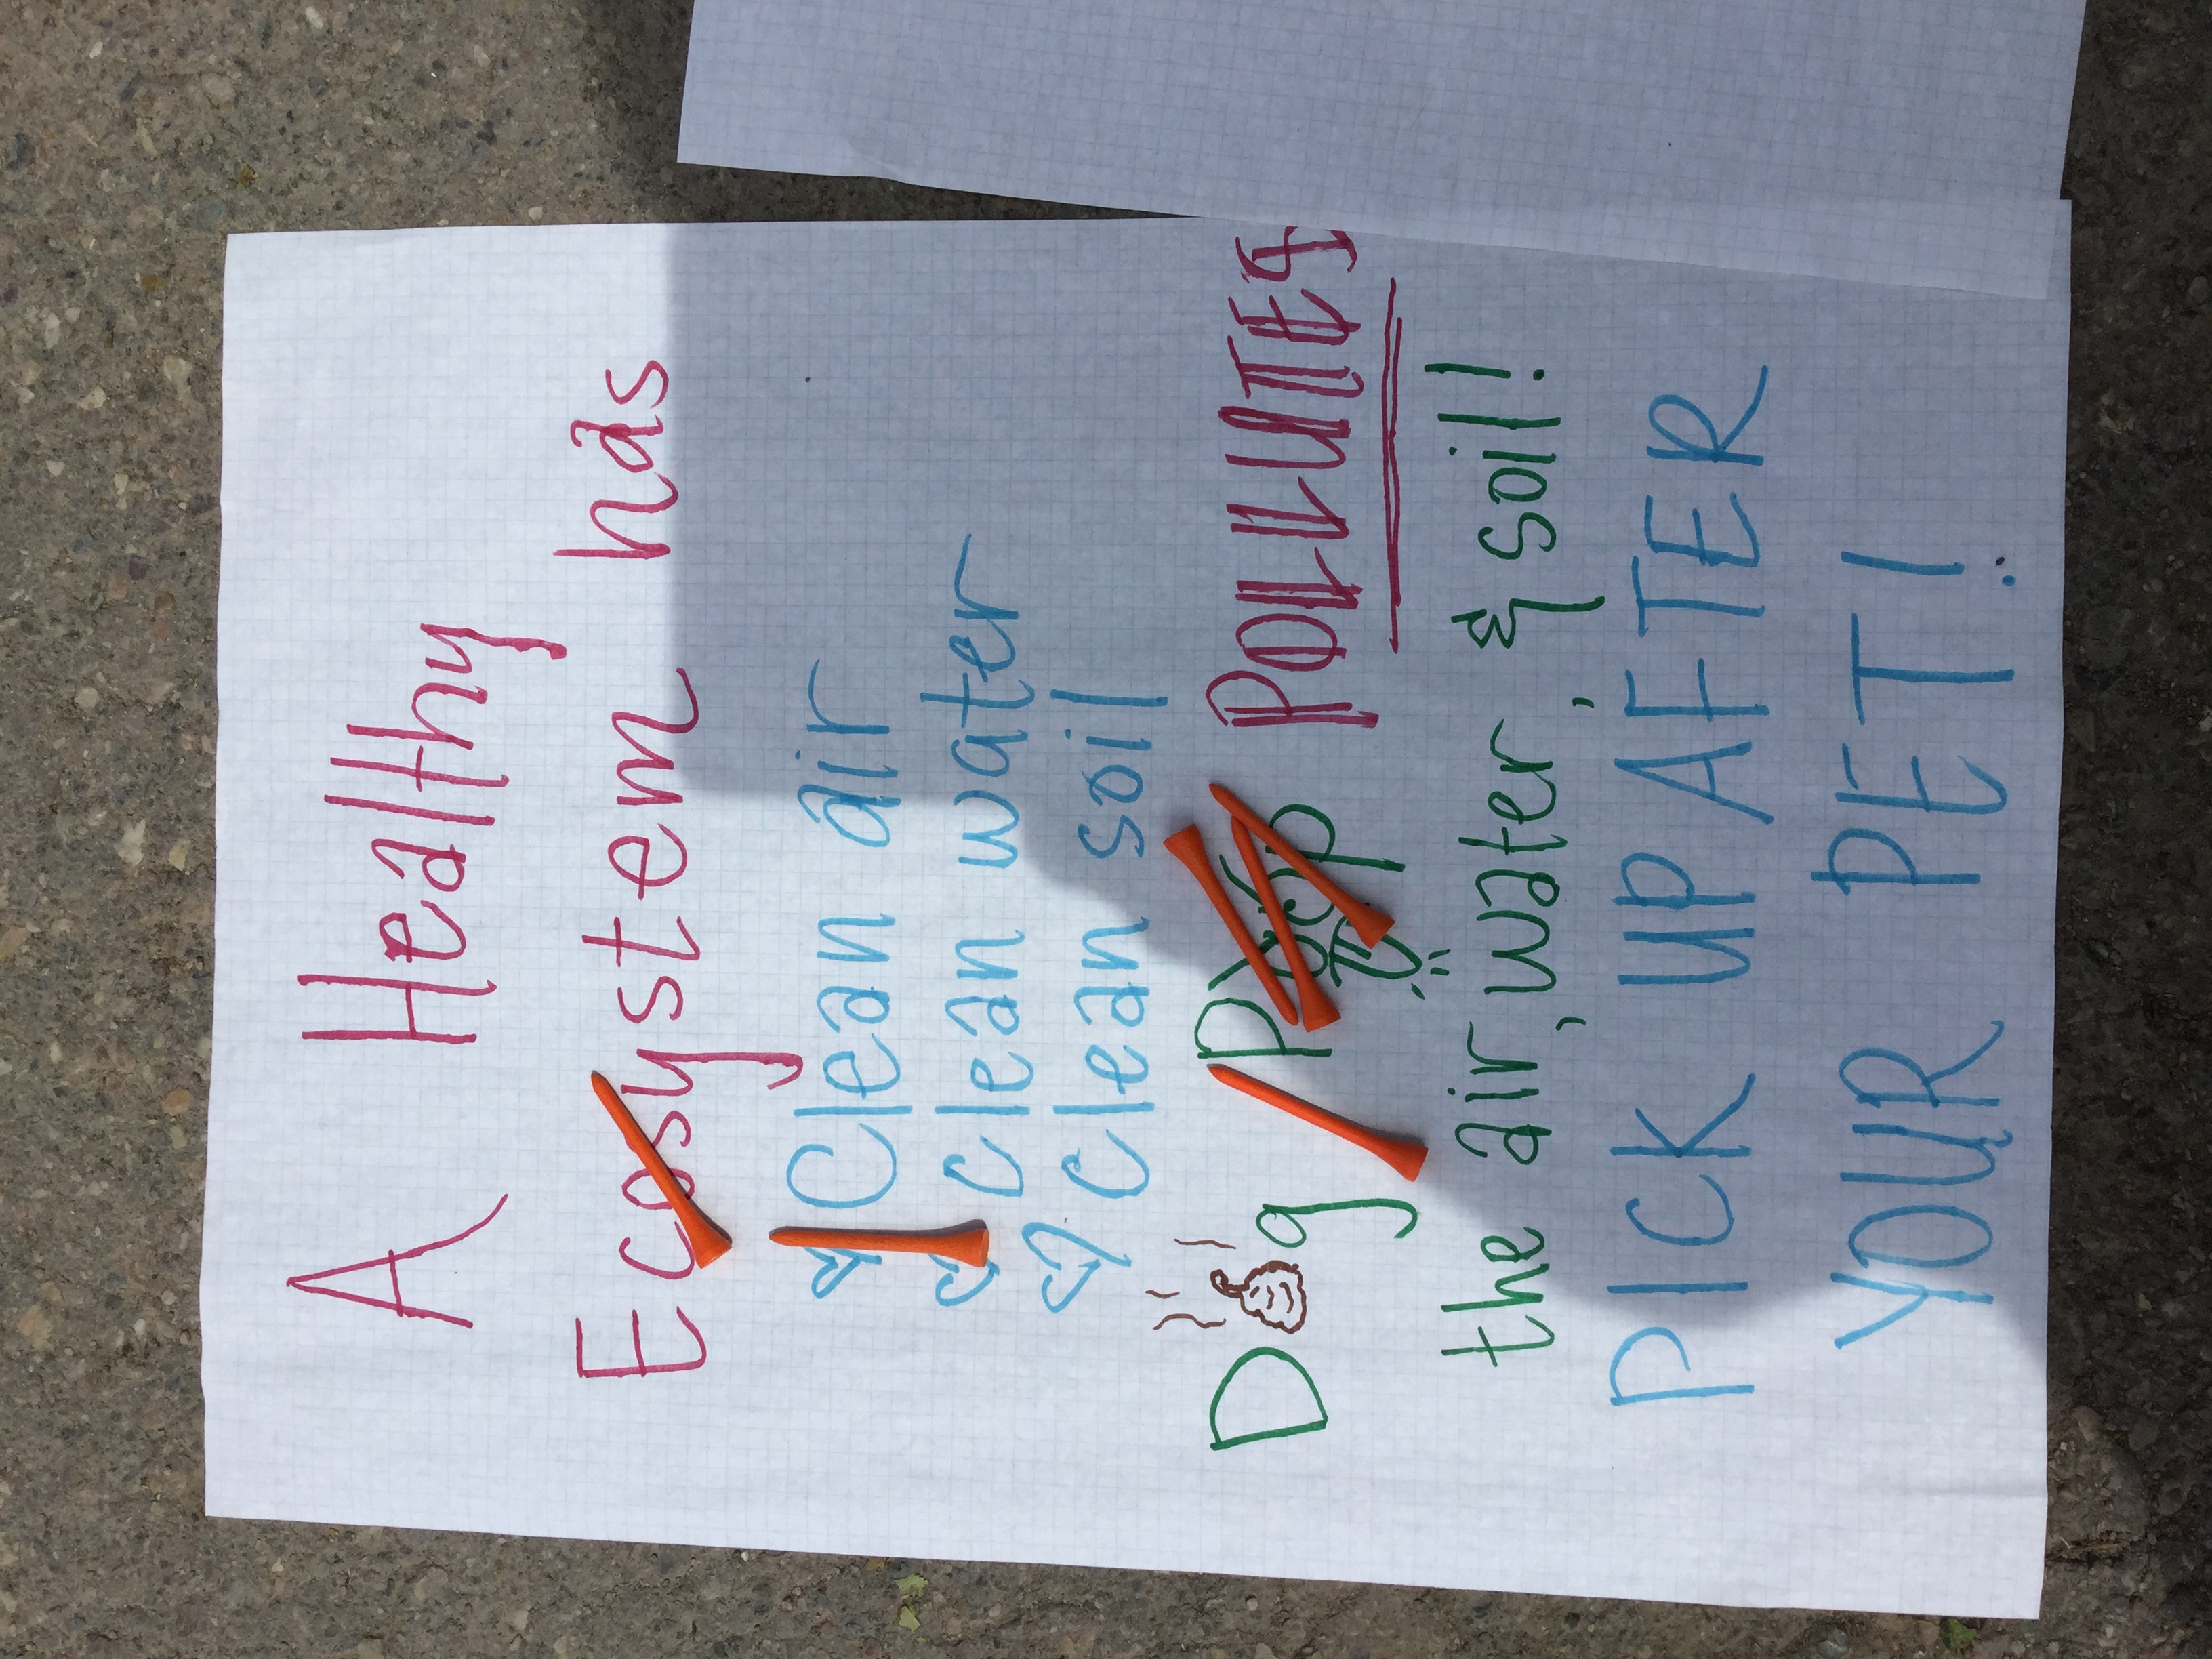 A Healthy
Ecosystem has
Clean air
clean water
clean soil
Dog Poop POLLUTES
the air, water, & soil!
PICK UP AFTER
YOUR PET!